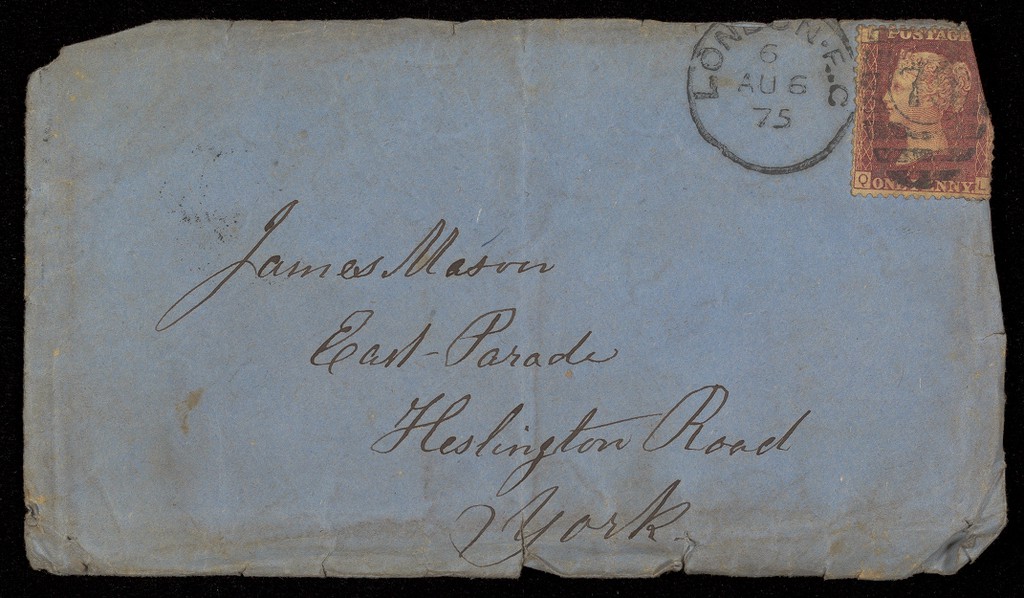 LONDON·E.C
6
AU 6
75
POSTAGE
Q ONE PENNY L
James Mason
East-Parade
Heslington Road
York.